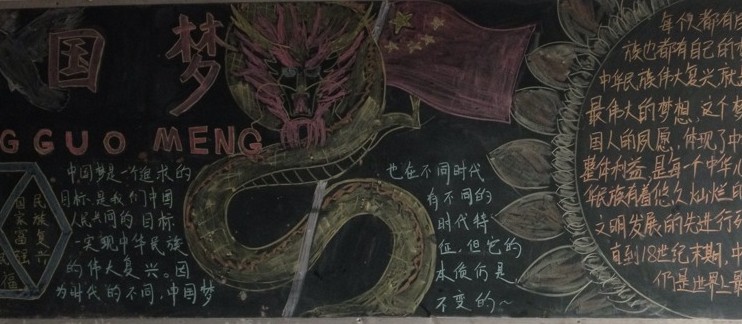 国梦
GGUO MENG
民族复兴
国家富强
福
中国梦是一个追求的
目标是我们中国
人民共同的目标
—实现中华民族
的伟大复兴。因
为时代的不同,中国梦
也在不同时代
有不同的
时代特
征,但它的
本质仍是
不变的~
每个都有自
族也都有自己的
中华民族伟大复兴就
最伟大的梦想,这个梦
国人的夙愿,体现了中
整体利益,是每一个中华
华民族有着悠久灿烂的
文明发展的先进行列
直到18世纪末期,中
仍是世界上最